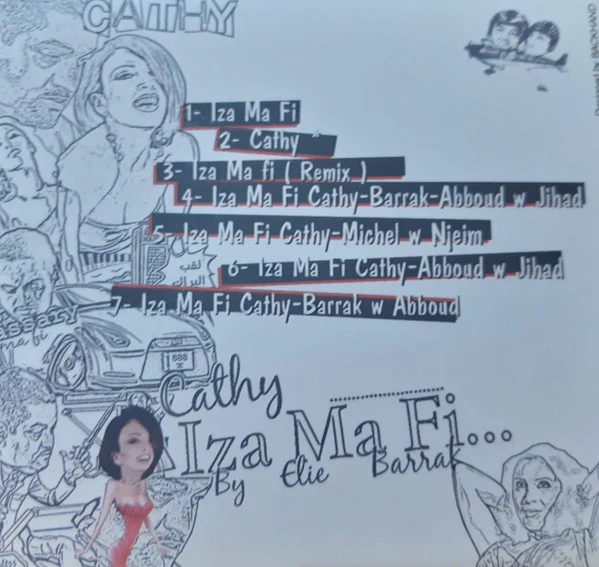 CATHY
1- Iza Ma Fi
2- Cathy
3- Iza Ma fi ( Remix )
4- Iza Ma Fi Cathy-Barrak-Abboud w Jihad
5- Iza Ma Fi Cathy-Michel w Njeim
نقب
6- Iza Ma Fi Cathy-Abboud w Jihad
7- Iza Ma Fi Cathy-Barrak w Abboud
ma fi
888
Cathy
Iza Ma Fi...
By Elie Barrak